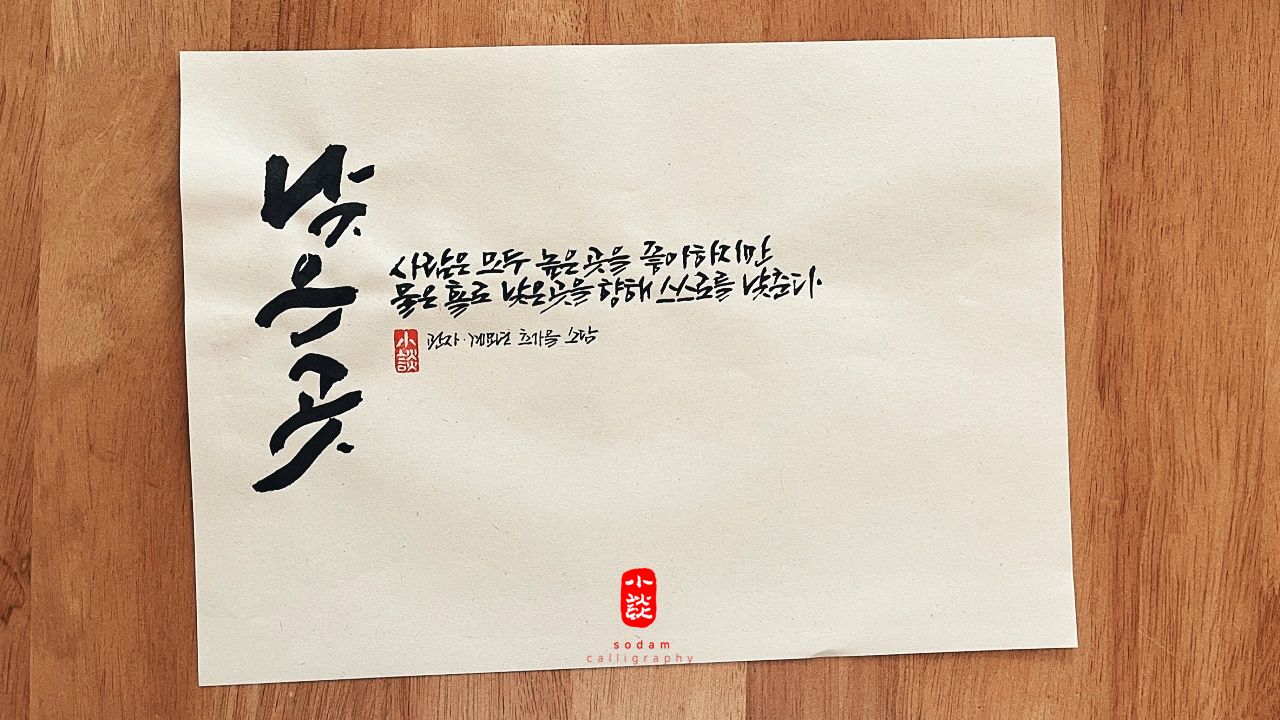 낮은 곳
사람은 모두 높은 곳을 좋아하지만
물은 홀로 낮은 곳을 향해 스스로를 낮춘다.
小談
小談
sodam
calligraphy